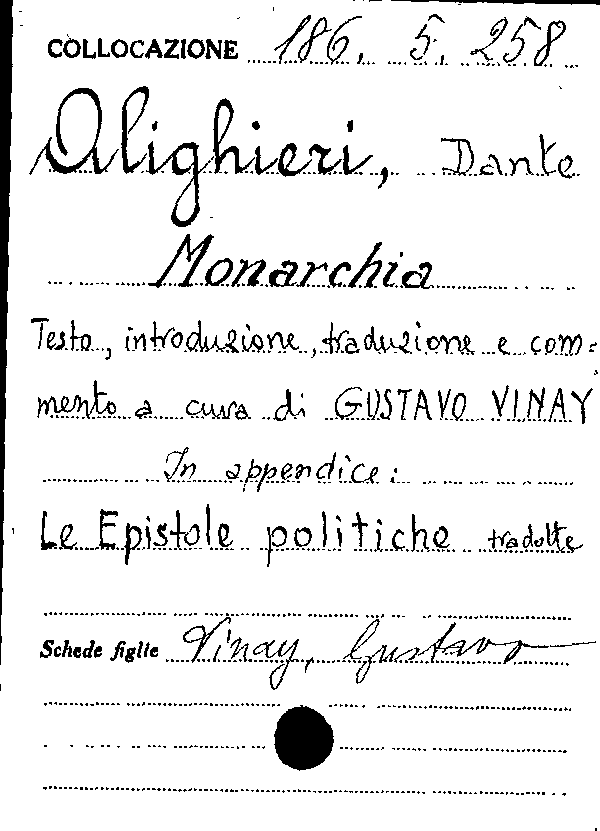 COLLOCAZIONE 186. 5. 258
Alighieri, Dante
Monarchia
Testo, introduzione, traduzione e com=
mento a cura di GUSTAVO VINAY
In appendice:
Le Epistole politiche tradotte
Schede figlie Vinay, Gustavo